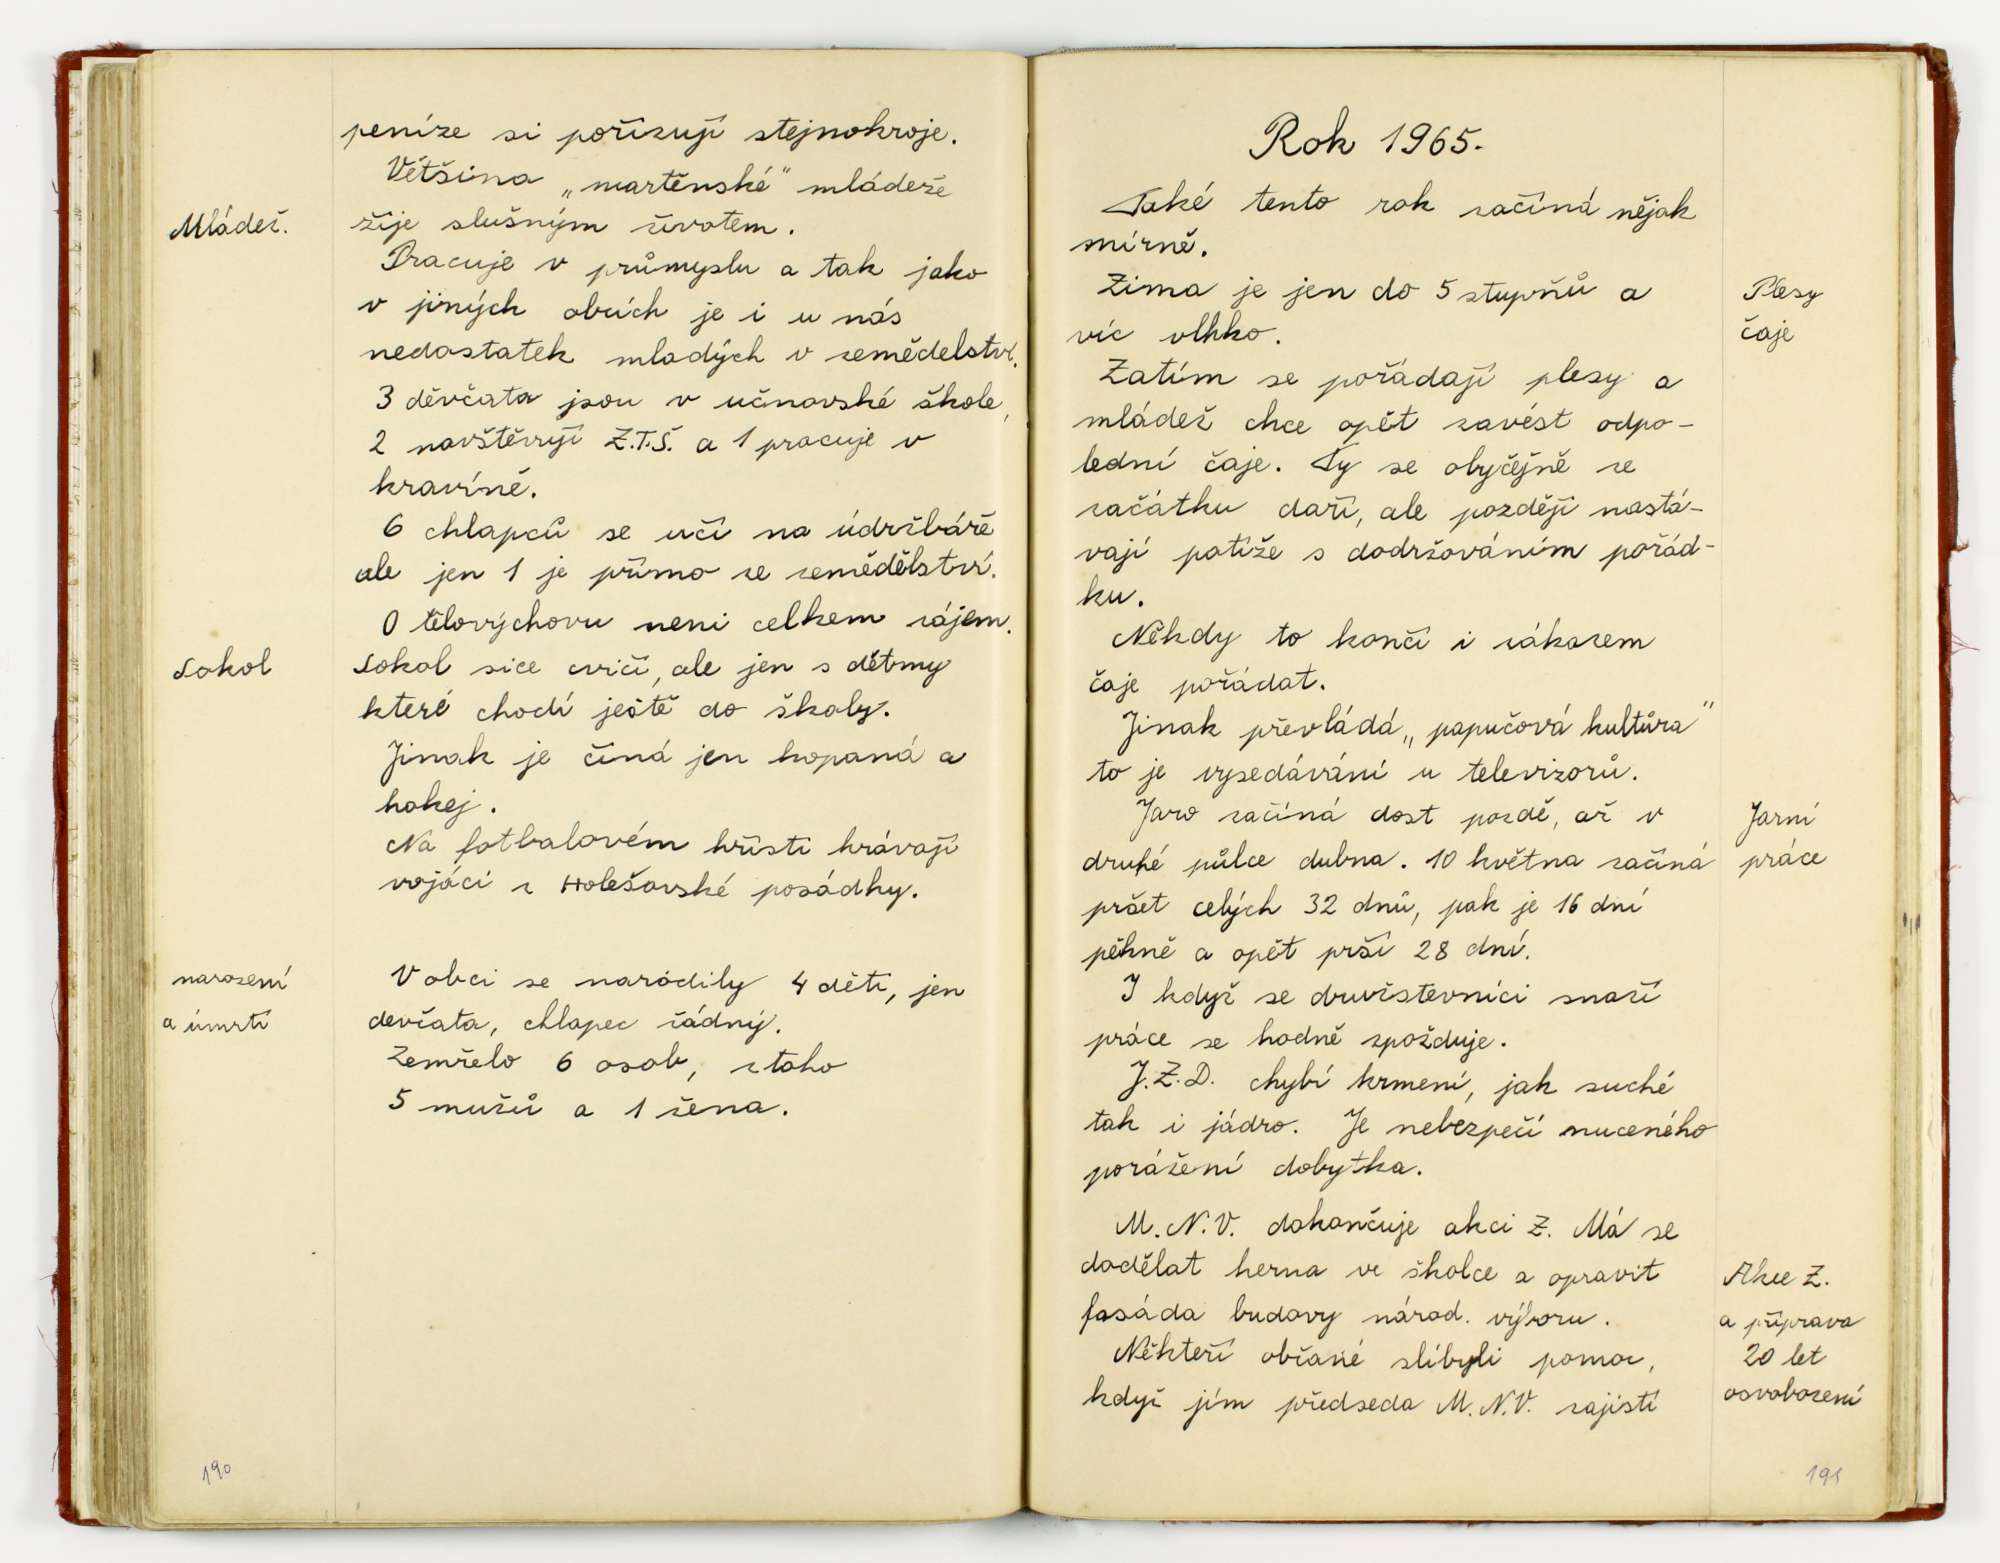 peníze si pořizují stejnokroje.
Většina „martěnské" mládeže
Mládež.
žije slušným životem.
Pracuje v průmyslu a tak jako
v jiných obcích je i u nás
nedostatek mladých v zemědelství.
3 děvčata jsou v učnovské škole,
2 navštěvují Z.T.Š. a 1 pracuje v
kravíně.
6 chlapců se učí na údržbáře
ale jen 1 je přímo ze zemědělství.
O tělovýchovu neni celkem zájem.
Sokol
Sokol sice cvičí, ale jen s dětmy
které chodí ještě do školy.
Jinak je činá jen kopaná a
hokej.
Na fotbalovém hřisti hrávají
vojáci z Holešovské posádky.
narození
a úmrtí
V obci se naródily 4 děti, jen
devčata, chlapec žádný.
Zemřelo 6 osob, z toho
5 mužů a 1 žena.
190
Rok 1965.
Také tento rok začíná nějak
mírně.
Zima je jen do 5 stupňů a
víc vlhko.
Plesy
čaje
Zatím se pořádají plesy a
mládež chce opět zavést odpo-
lední čaje. Ty se obyčějně ze
začátku daří, ale pozdějí nastá-
vají potíže s dodržováním pořád-
ku.
Někdy to končí i zákazem
čaje pořádat.
Jinak převládá „papučová kultůra"
to je vysedávání u televizorů.
Jaro začíná dost pozdě, až v
druhé půlce dubna. 10 května začíná
Jarní
práce
pršet celých 32 dnů, pak je 16 dní
pěkně a opět prší 28 dní.
I když se druvžstevníci snaží
práce se hodně zpožduje.
J.Z.D. chybí krmení, jak suché
tak i jádro. Je nebezpečí nuceného
porážení dobytka.
M.N.V. dokančuje akci Z. Má se
dodělat herna ve školce a opravit
fasáda budovy národ. výboru.
Někteří občané slíbyli pomoc,
když jím předseda M.N.V. zajistí
Akce Z.
a příprava
20 let
osvobození
191